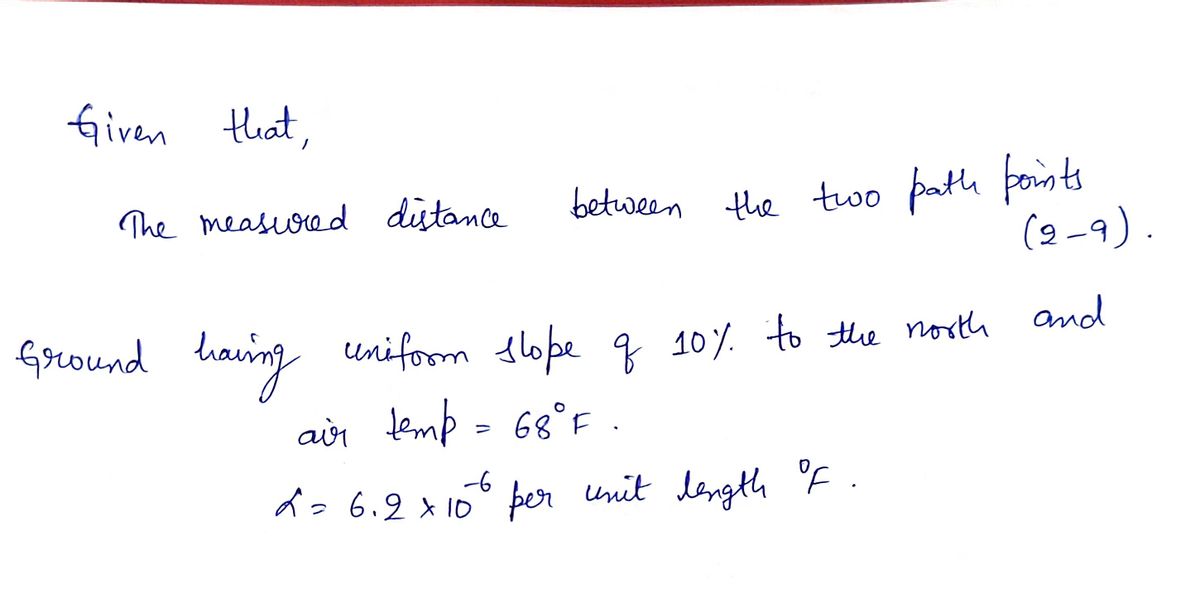 Given that,
The measured distance between the two path points
(2-9).
Ground having uniform slope of 10% to the north and
air temp = 68°F.
α = 6.2 × 10⁻⁶ per unit length °F.